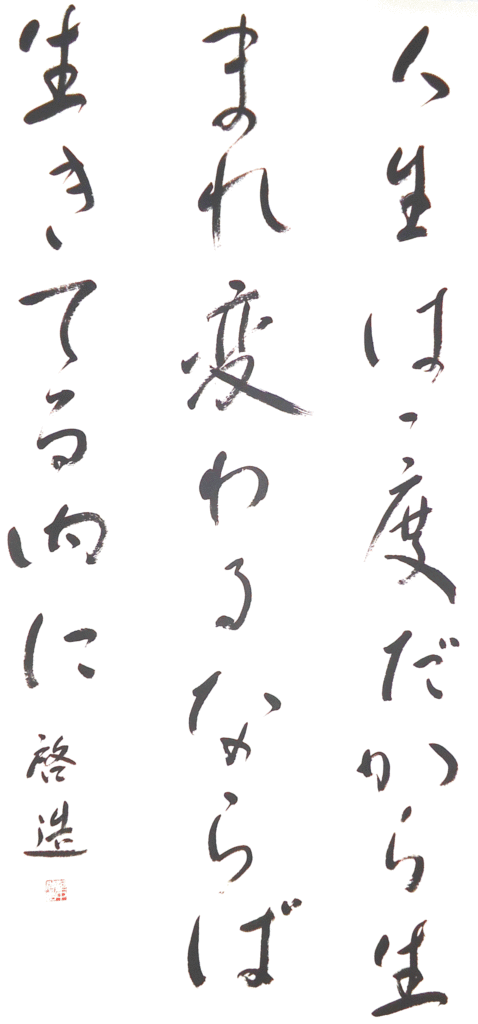 人生は一度だから生
まれ変わるならば
生きてる内に
啓造